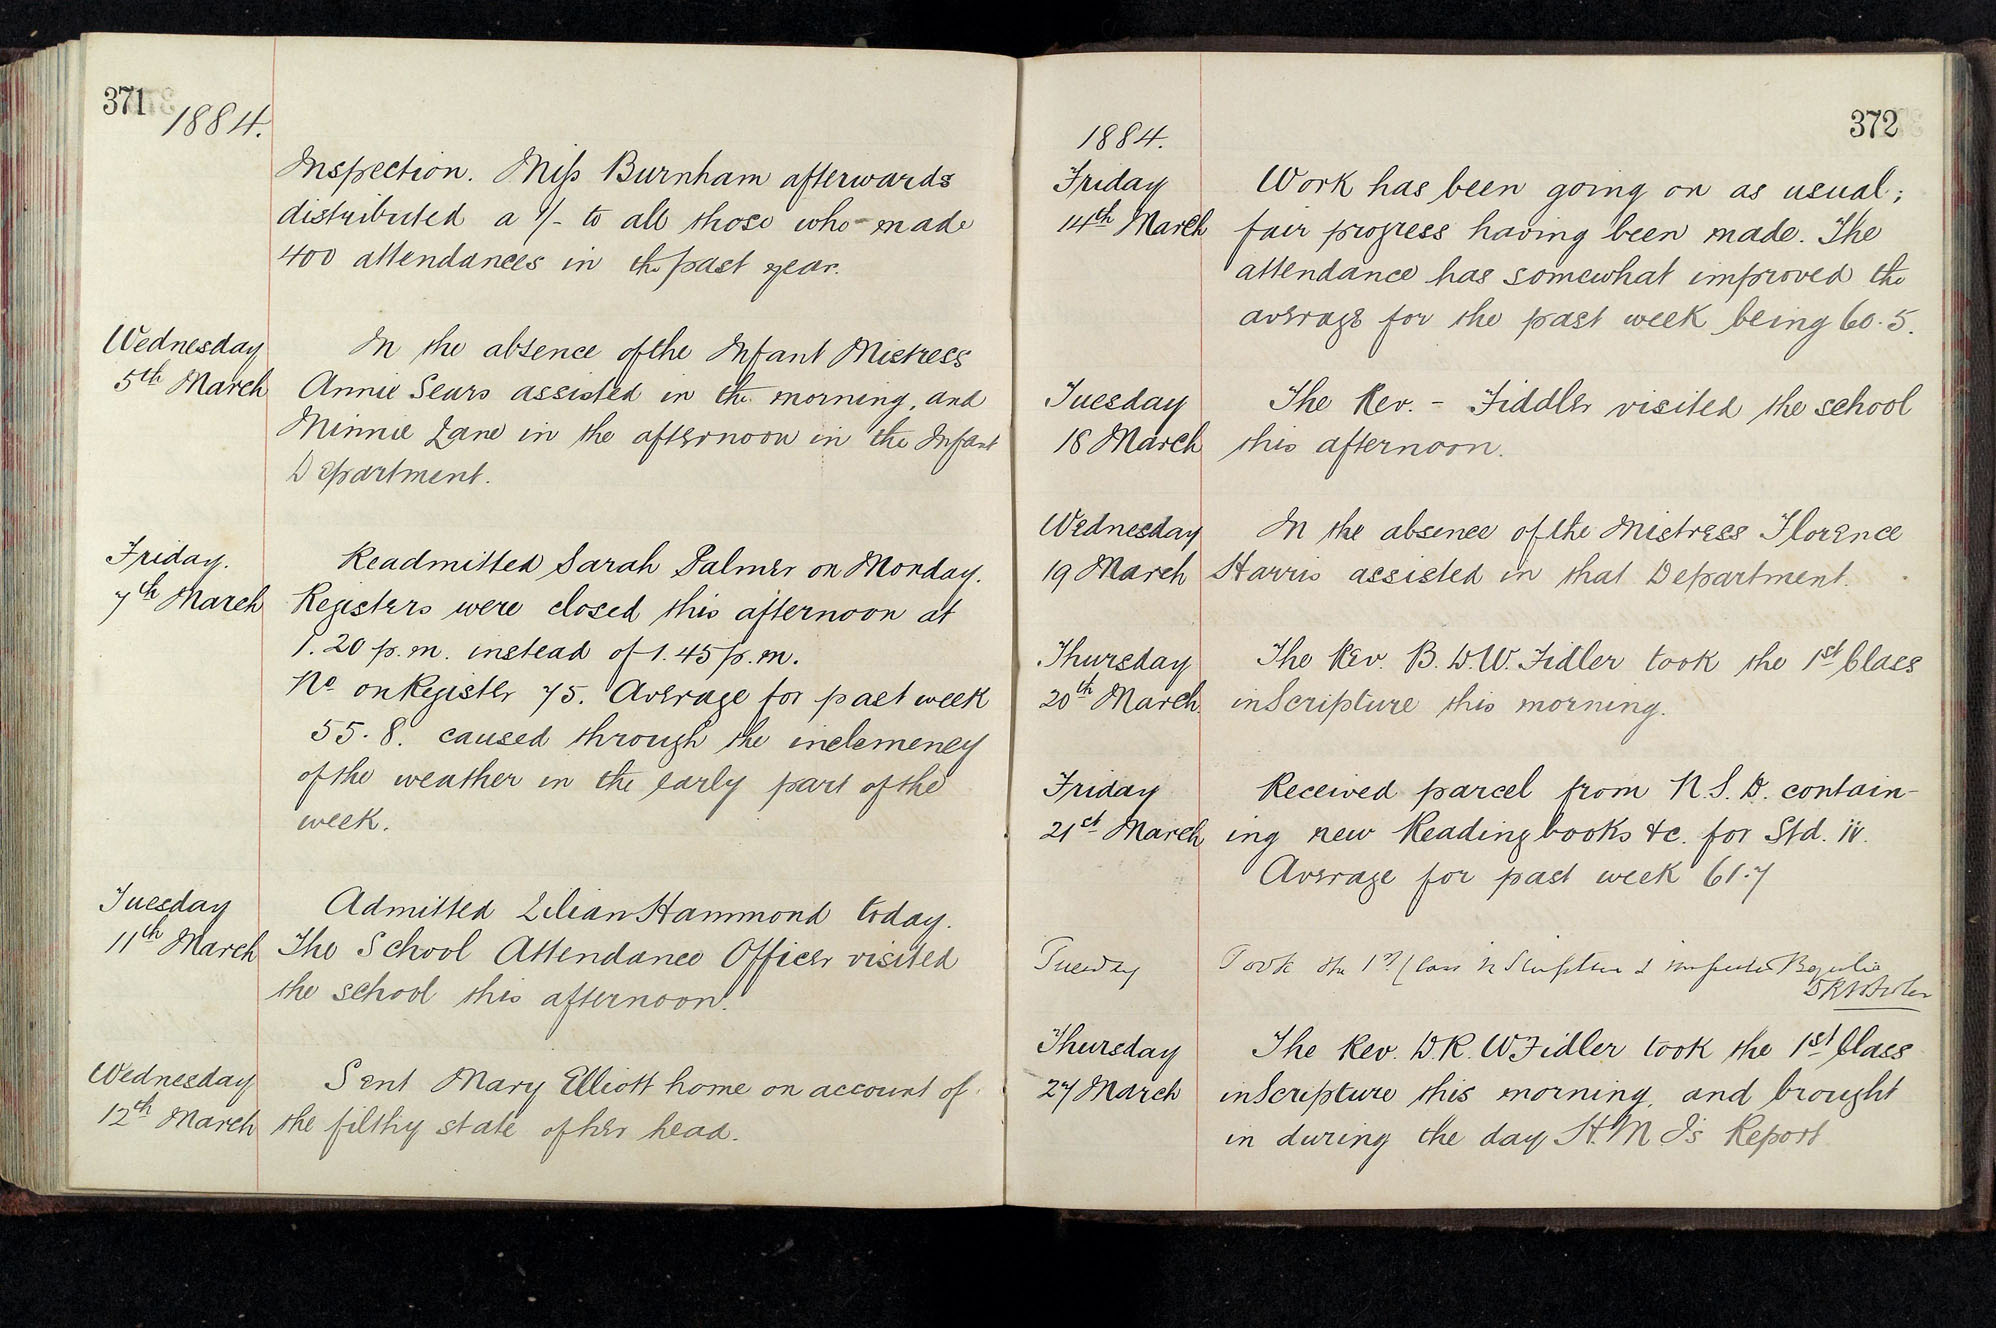 371
1884.
Inspection. Miss Burnham afterwards
distributed a 1/- to all those who made
400 attendances in the past year.
Wednesday
5th March
In the absence of the Infant Mistress
Annie Sears assisted in the morning, and
Minnie Lane in the afternoon in the Infant
Department.
Friday.
7th March
Readmitted Sarah Palmer on Monday.
Registers were closed this afternoon at
1.20 p.m. instead of 1.45 p.m.
No on Register 75. Average for past week
55.8. caused through the inclemency
of the weather in the early part of the
week.
Tuesday
11th March
Admitted Lilian Hammond today.
The School Attendance Officer visited
the school this afternoon.
Wednesday
12th March
Sent Mary Elliott home on account of
the filthy state of her head.
372
1884.
Friday
14th March
Work has been going on as usual;
fair progress having been made. The
attendance has somewhat improved the
average for the past week being 60.5.
Tuesday
18 March
The Rev. - Fiddler visited the school
this afternoon.
Wednesday
19 March
In the absence of the Mistress Florence
Harris assisted in that Department.
Thursday
20th March
The Rev. B. D.W. Fidler took the 1st Class
in Scripture this morning.
Friday
21st March
Received parcel from N.S.D. contain-
ing new Reading books &c. for Std. iv.
Average for past week 61.7
Tuesday
Took the 1st Class in Scripture &
Thursday
27 March
The Rev. D.R. W Fidler took the 1st Class
in Scripture this morning, and brought
in during the day H.M.I's Report